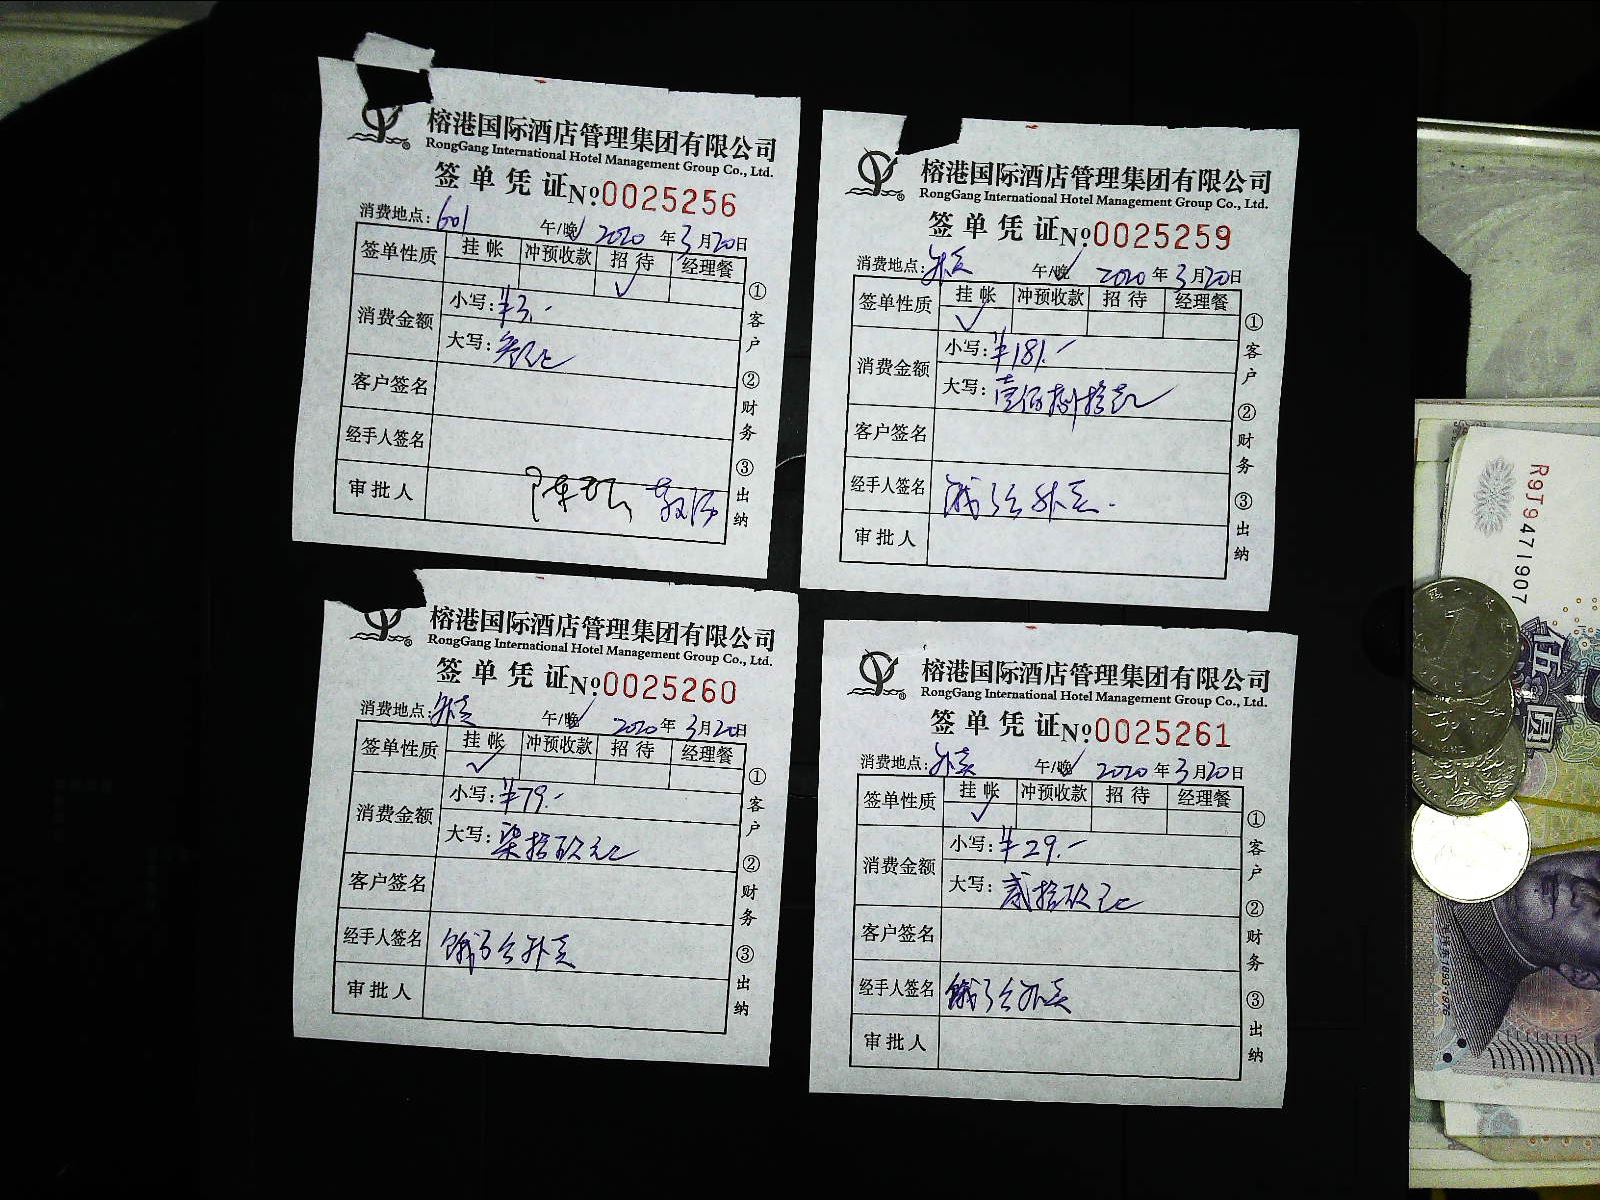 榕港国际酒店管理集团有限公司
RongGang International Hotel Management Group Co., Ltd.
签单凭证 №:0025256
消费地点: 601 午/晚 2020 年 3 月 20 日
签单性质 挂帐 冲预收款 招待 经理餐
✓
消费金额 小写: ¥3.-
大写: 叁元
客户签名
经手人签名
审批人
①客户 ②财务 ③出纳
榕港国际酒店管理集团有限公司
RongGang International Hotel Management Group Co., Ltd.
签单凭证 №:0025259
消费地点: 外卖 午/晚 2020 年 3 月 20 日
签单性质 挂帐 冲预收款 招待 经理餐
✓
消费金额 小写: ¥181.-
大写: 壹佰捌拾壹元
客户签名
经手人签名 饿了么外卖.
审批人
①客户 ②财务 ③出纳
榕港国际酒店管理集团有限公司
RongGang International Hotel Management Group Co., Ltd.
签单凭证 №:0025260
消费地点: 外卖 午/晚 2020 年 3 月 20 日
签单性质 挂帐 冲预收款 招待 经理餐
✓
消费金额 小写: ¥79.-
大写: 柒拾玖元
客户签名
经手人签名 饿了么外卖
审批人
①客户 ②财务 ③出纳
榕港国际酒店管理集团有限公司
RongGang International Hotel Management Group Co., Ltd.
签单凭证 №:0025261
消费地点: 外卖 午/晚 2020 年 3 月 20 日
签单性质 挂帐 冲预收款 招待 经理餐
✓
消费金额 小写: ¥29.-
大写: 贰拾玖元
客户签名
经手人签名 饿了么外卖
审批人
①客户 ②财务 ③出纳
R9T9471907
伍圆